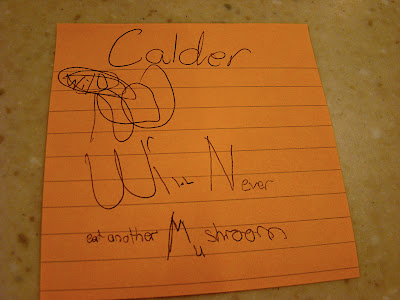 Calder
Will Never
eat another Mushroom